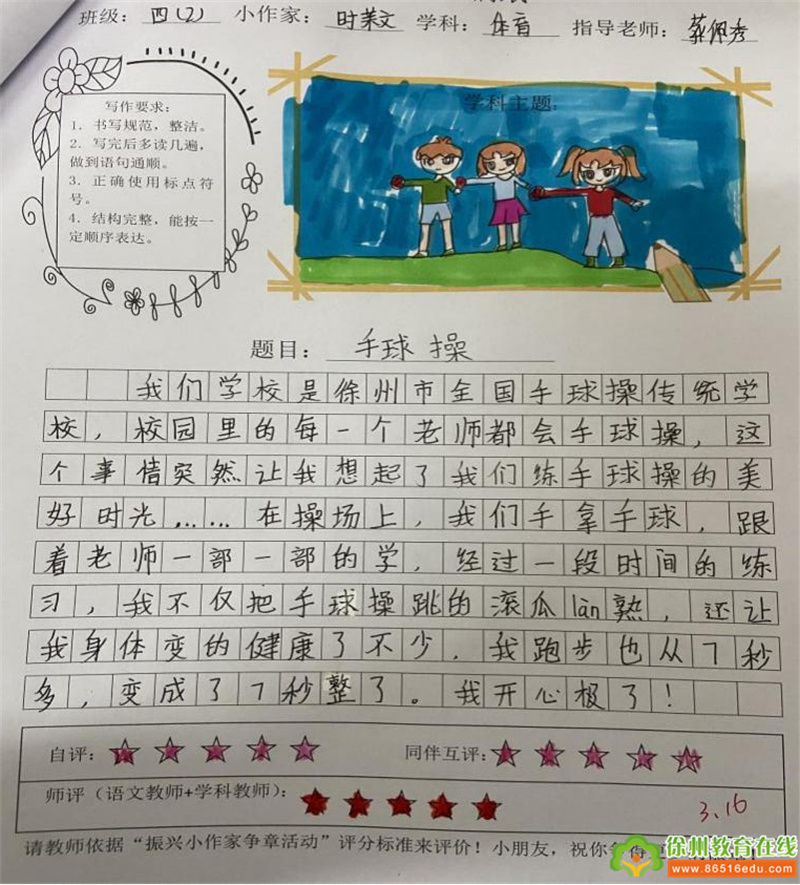 班级：四(2) 小作家：时莱文 学科：体育 指导老师：蔡佩秀
写作要求：
1．书写规范，整洁。
2．写完后多读几遍，
做到语句通顺。
3．正确使用标点符
号。
4．结构完整，能按一
定顺序表达。
学科主题：
题目：手球操
我们学校是徐州市全国手球操传统学
校，校园里的每一个老师都会手球操，这
个事情突然让我想起了我们练手球操的美
好时光……在操场上，我们手拿手球，跟
着老师一部一部的学，经过一段时间的练
习，我不仅把手球操跳的滚瓜làn熟，还让
我身体变的健康了不少，我跑步也从7秒
多，变成了7秒整了。我开心极了！
自评：
同伴互评：
师评（语文教师+学科教师）：
3.16
请教师依据“振兴小作家争章活动”评分标准来评价！小朋友，祝你
徐州教育在线
www.86516edu.com